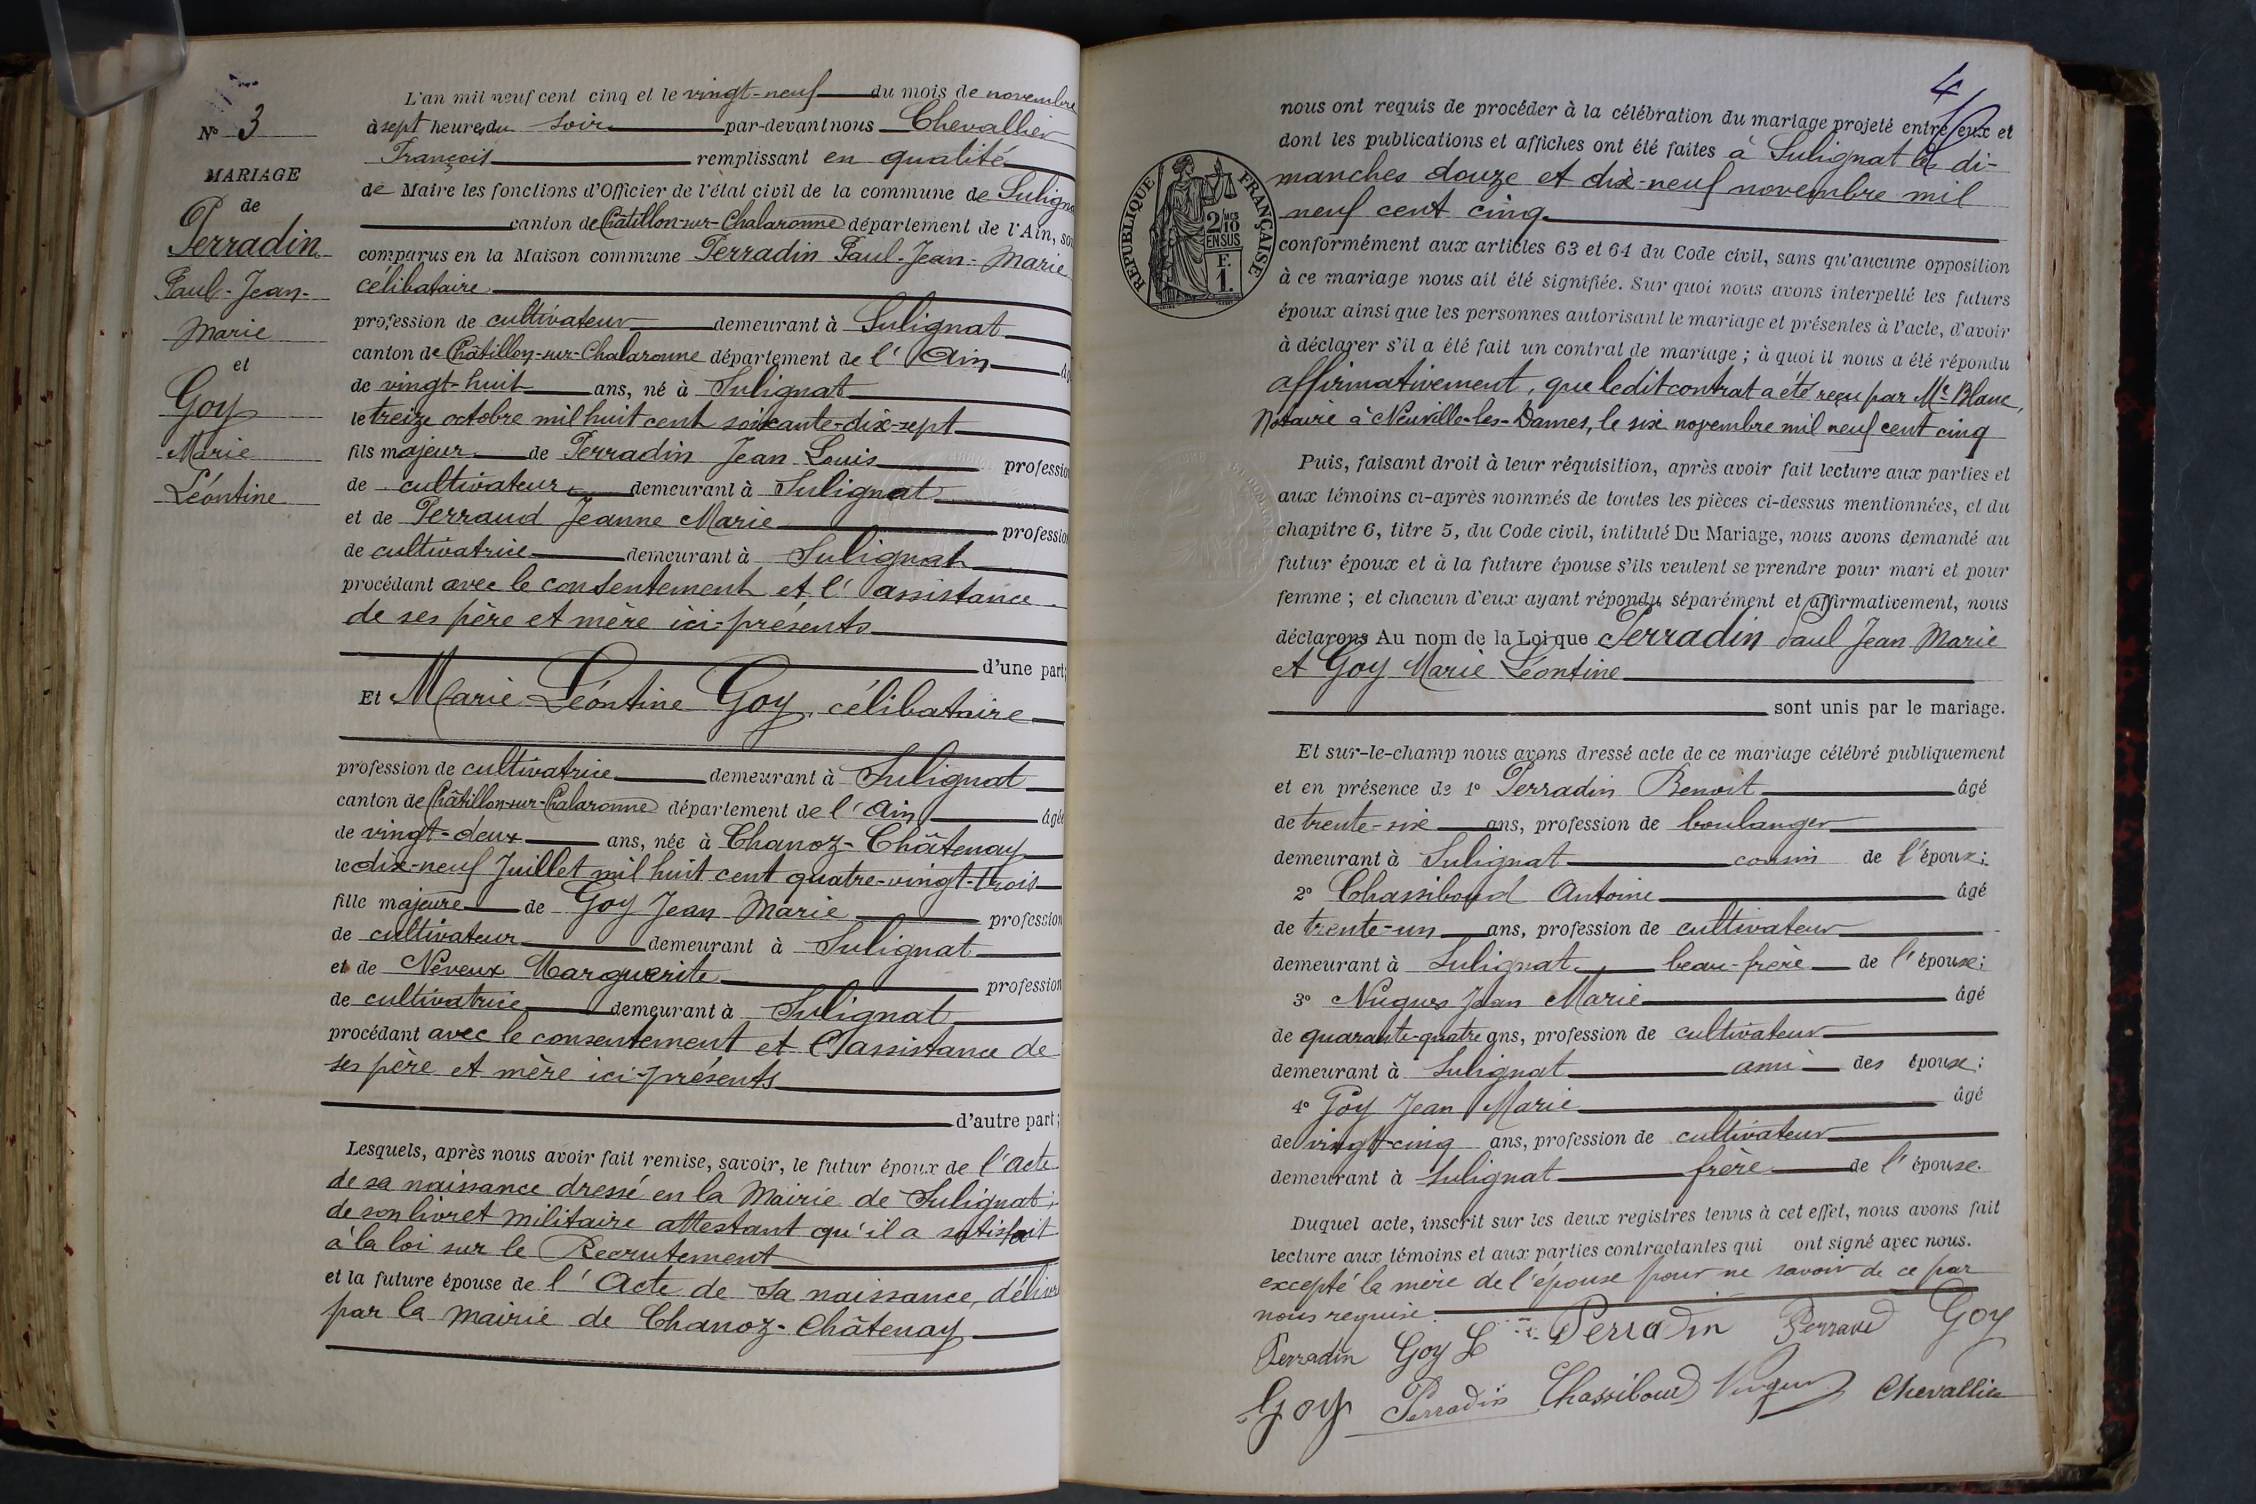 N° 3
MARIAGE
de
Perradin
Paul-Jean-
Marie
et
Goy
Marie
Léontine
L'an mil neuf cent cinq et le vingt-neuf du mois de novembre
à sept heures du soir par-devant nous Chevallier
François remplissant en qualité
de Maire les fonctions d'Officier de l'état civil de la commune de Suligna
canton de Châtillon-sur-Chalaronne département de l'Ain, so
comparus en la Maison commune Perradin Paul-Jean-Marie
célibataire
profession de cultivateur demeurant à Sulignat
canton de Châtillon-sur-Chalaronne département de l'Ain
de vingt-huit ans, né à Sulignat
le treize octobre mil huit cent soixante-dix-sept
fils majeur de Perradin Jean Louis profession
de cultivateur demeurant à Sulignat
et de Perraud Jeanne Marie profession
de cultivatrice demeurant à Sulignat
procédant avec le consentement et l'assistance
de ses père et mère ici-présents
d'une part;
Et Marie-Léontine Goy, célibataire
profession de cultivatrice demeurant à Sulignat
canton de Châtillon-sur-Chalaronne département de l'Ain âgée
de vingt-deux ans, née à Chanoz-Châtenay
le dix-neuf Juillet mil huit cent quatre-vingt-trois
fille majeure de Goy Jean Marie profession
de cultivateur demeurant à Sulignat
et de Néveux Marguerite profession
de cultivatrice demeurant à Sulignat
procédant avec le consentement et l'assistance de
ses père et mère ici-présents
d'autre part;
Lesquels, après nous avoir fait remise, savoir, le futur époux de l'acte
de sa naissance dressé en la Mairie de Sulignat;
de son livret militaire attestant qu'il a satisfait
à la loi sur le Recrutement
et la future épouse de l'Acte de sa naissance, délivré
par la mairie de Chanoz-Châtenay
4
nous ont requis de procéder à la célébration du mariage projeté entre eux et
dont les publications et affiches ont été faites à Sulignat les di-
manches douze et dix-neuf novembre mil
neuf cent cinq
RÉPUBLIQUE FRANÇAISE
2/10
EN SUS
F.
1.
conformément aux articles 63 et 64 du Code civil, sans qu'aucune opposition
à ce mariage nous ait été signifiée. Sur quoi nous avons interpellé les futurs
époux ainsi que les personnes autorisant le mariage et présentes à l'acte, d'avoir
à déclarer s'il a été fait un contrat de mariage; à quoi il nous a été répondu
affirmativement, que ledit contrat a été reçu par Me Blanc,
Notaire à Neuville-les-Dames, le six novembre mil neuf cent cinq
Puis, faisant droit à leur réquisition, après avoir fait lecture aux parties et
aux témoins ci-après nommés de toutes les pièces ci-dessus mentionnées, et du
chapitre 6, titre 5, du Code civil, intitulé Du Mariage, nous avons demandé au
futur époux et à la future épouse s'ils veulent se prendre pour mari et pour
femme; et chacun d'eux ayant répondu séparément et affirmativement, nous
déclarons Au nom de la Loi que Perradin Paul Jean Marie
et Goy Marie Léontine
sont unis par le mariage.
Et sur-le-champ nous avons dressé acte de ce mariage célébré publiquement
et en présence de 1° Perradin Benoit âgé
de trente-six ans, profession de boulanger
demeurant à Sulignat cousin de l'époux;
2° Chassiboud Antoine âgé
de trente-un ans, profession de cultivateur
demeurant à Sulignat beau-frère de l'épouse;
3° Nugues Jean Marie âgé
de quarante-quatre ans, profession de cultivateur
demeurant à Sulignat ami des épouse;
4° Goy Jean Marie âgé
de vingt-cinq ans, profession de cultivateur
demeurant à Sulignat frère de l'épouse.
Duquel acte, inscrit sur les deux registres tenus à cet effet, nous avons fait
lecture aux témoins et aux parties contractantes qui ont signé avec nous.
excepté la mère de l'épouse pour ne savoir de ce par
nous requise.
Perradin Goy L Perradin Perraud Goy
Goy Perradin Chassiboud Chevallier